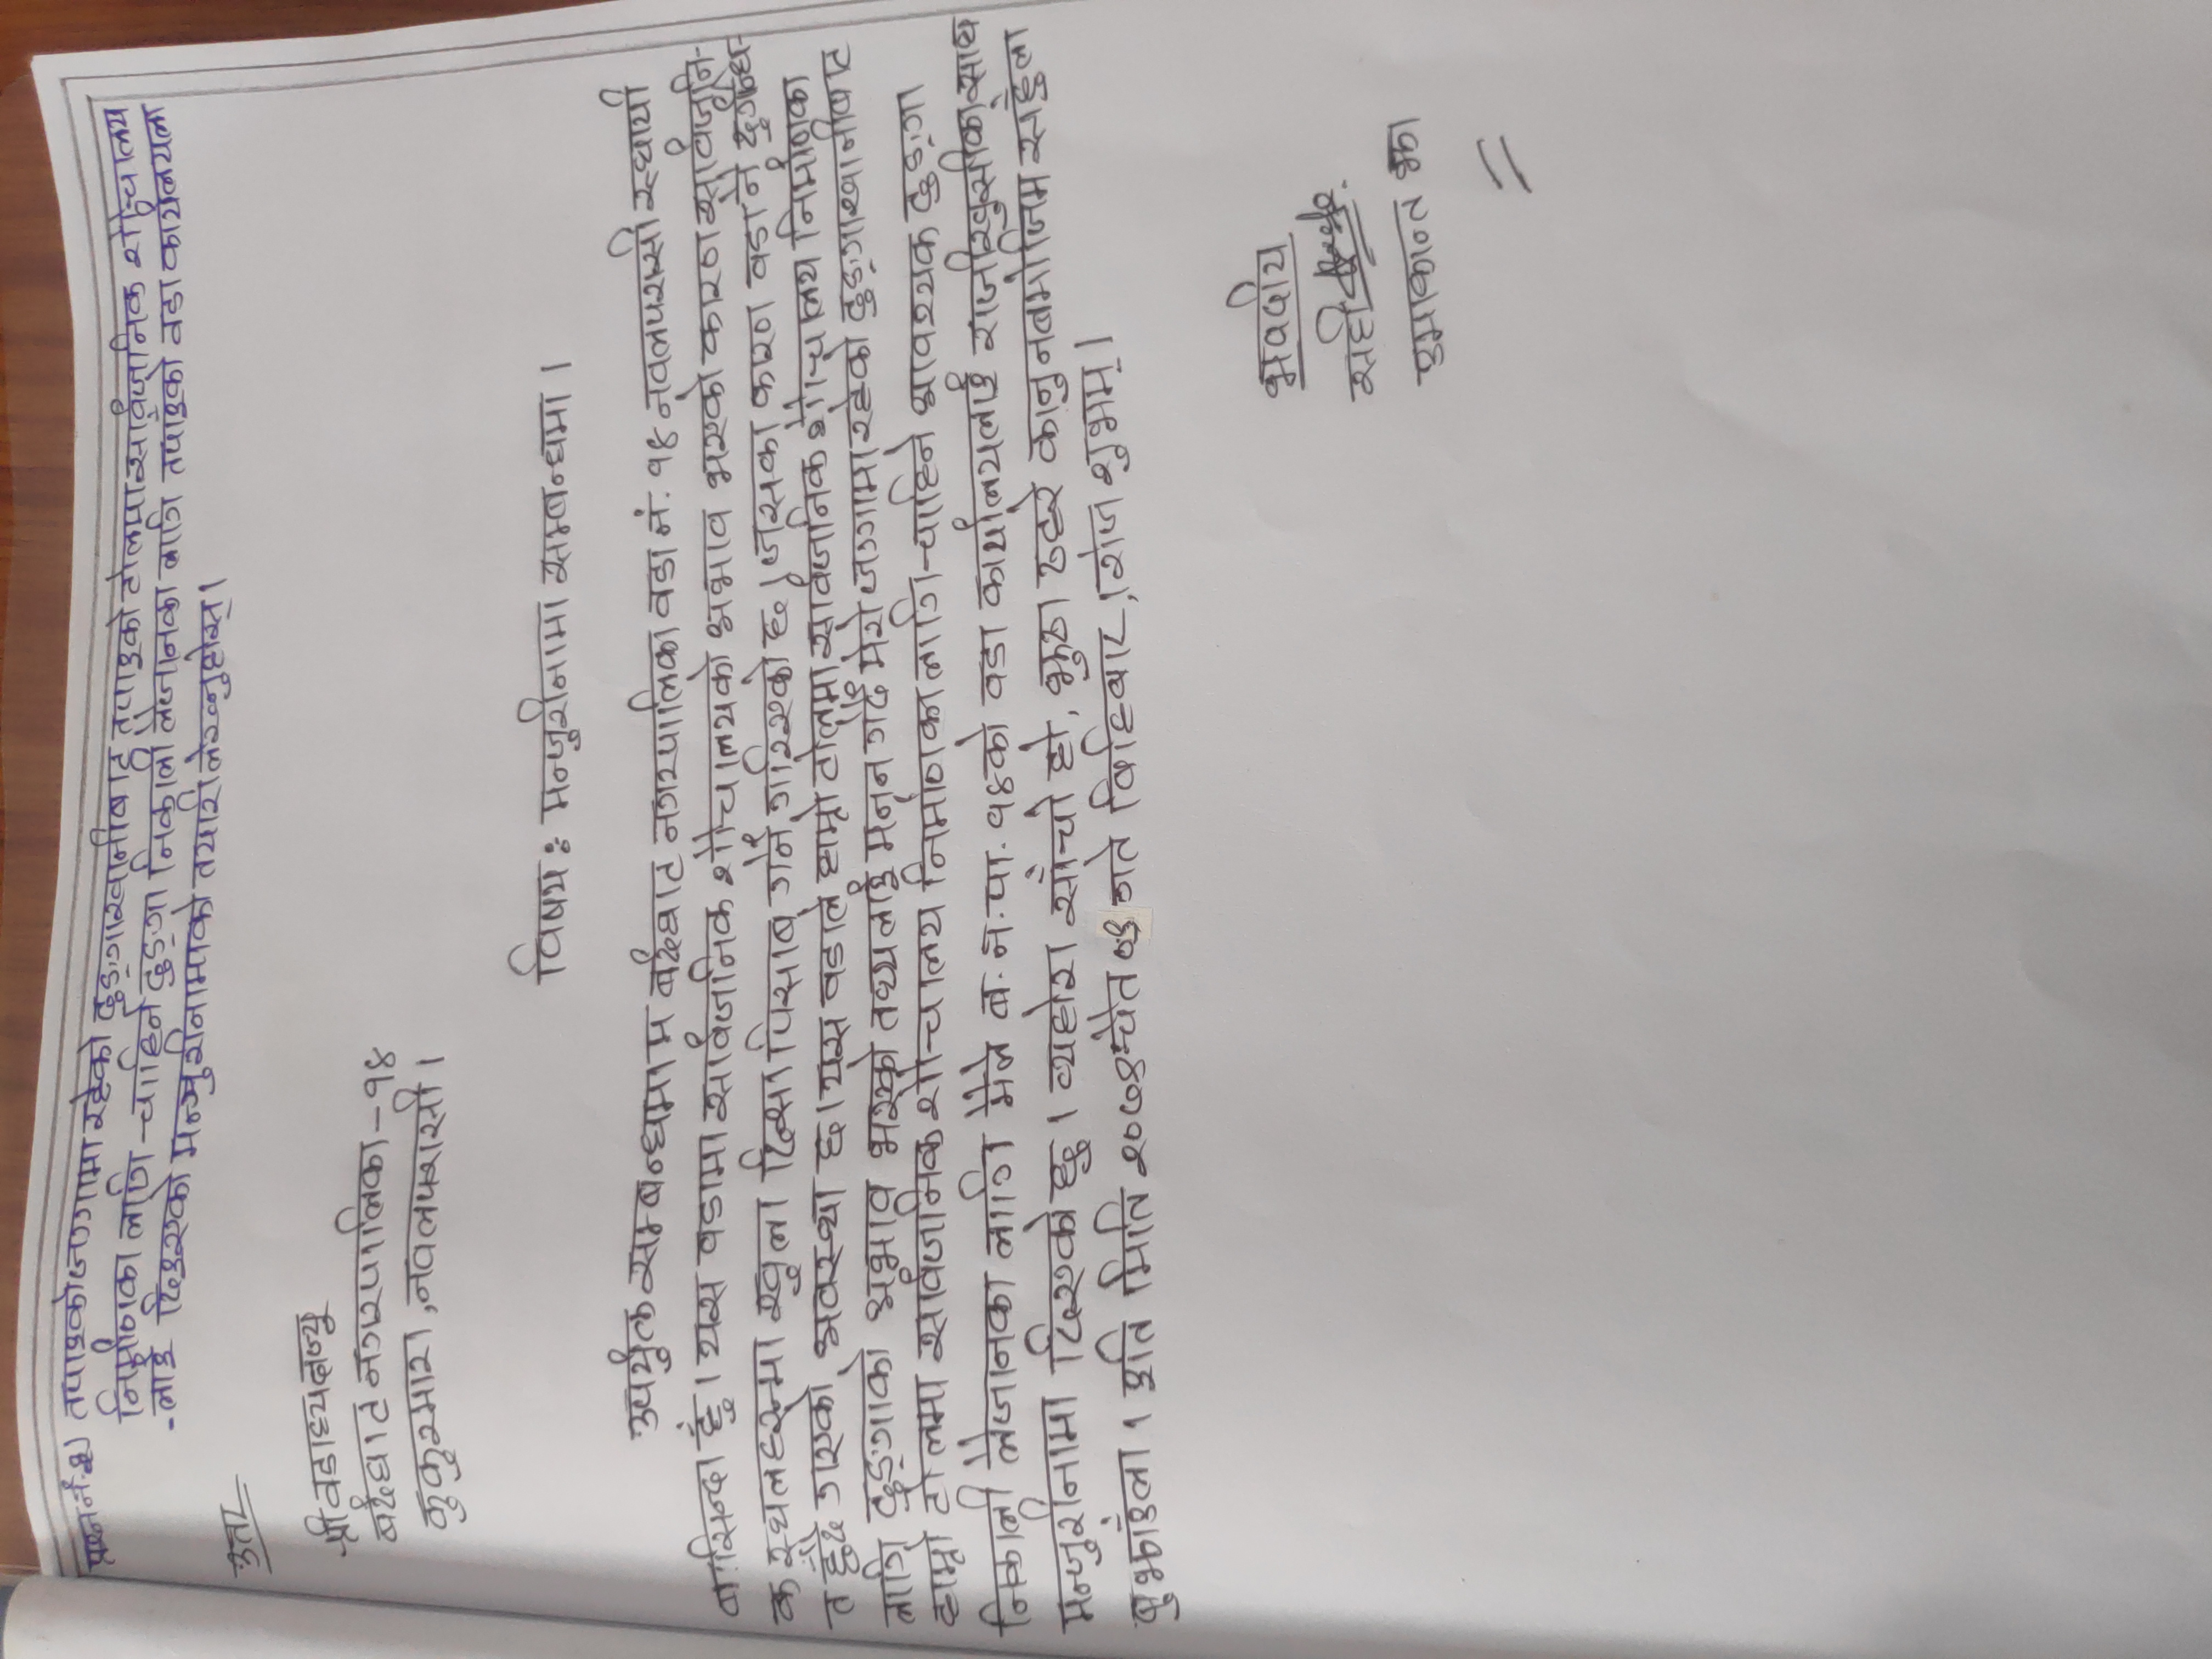 प्रश्न नं. २) तपाइको जग्गामा रहेको ढुङ्गाखानीबाट तपाइको टोलमा सार्वजनिक शौचालय
निर्माणका लागि चाहिने ढुङ्गा निकाली लैजानका लागि तपाइँको वडा कार्यलयला
-लाई दिइएको मन्जुरीनामाको तयारी लेख्नुहोस्।
उत्तर
श्री वडाध्यक्षज्यू
बर्दघाट नगरपालिका - १४
कुकुरमारा, नवलपरासी।
विषय : मन्जुरीनामा सम्बन्धमा।
उपर्युक्त सम्बन्धमा म बर्दघाट नगरपालिका वडा नं. १४ नवलपरासी स्थायी
बासिन्दा हुँ। यस वडामा सार्वजनिक शौचालयको अभाव भएको कारण सार्वजनि-
क स्थलहरूमा खुला दिसा पिसाब गर्ने गरिएको छ। जसका कारण वडा नै दुर्गन्धि-
त हुँदै गएको अवस्था छ। यस वडाले हाम्रो टोलमा सार्वजनिक शौचालय निर्माणका
लागि ढुङ्गाको अभाव भएको तथ्यलाई मनन गर्दै मेरो जग्गामा रहेको ढुङ्गाखानीबाट
हाम्रो टोलमा सार्वजनिक शौचालय निर्माणका लागि चाहिने आवश्यक ढुङ्गा
निकाली लैजानका लागि मैले ब. न. पा. १४को वडा कार्यालयलाई राजीखुसीका साथ
मन्जुरीनामा दिएको छु। व्यहोरा साँचो हो, झुठा ठहरे कानुनबमोजिम सहुँला
बुझाउँला। इति मिति चैत गते बिहिबार, रोज शुभम्।
भवदीय
सही
उमाकान्त झा